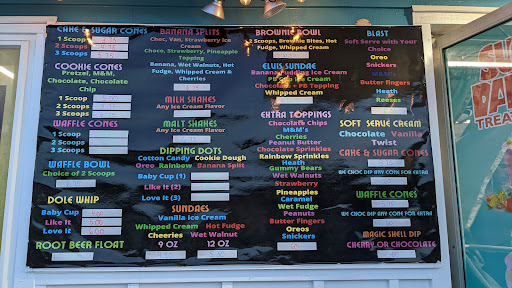 CAKE & SUGAR CONES
1 Scoop
2 Scoops
3 Scoops
COOKIE CONES
Pretzel, M&M,
Chocolate, Chocolate
Chip
1 Scoop
2 Scoops
3 Scoops
WAFFLE CONES
1 Scoop
2 Scoops
3 Scoops
WAFFLE BOWL
Choice of 2 Scoops
DOLE WHIP
Baby Cup
Like It
Love It
ROOT BEER FLOAT
BANANA SPLITS
Choc, Van, Strawberry Ice
Cream
Choco, Strawberry, Pineapple
Topping
Banana, Wet Walnuts, Hot
Fudge, Whipped Cream &
Cherries
MILK SHAKES
Any Ice Cream Flavor
MALT SHAKES
Any Ice Cream Flavor
DIPPING DOTS
Cotton Candy Cookie Dough
Oreo Rainbow Banana Split
Baby Cup (1)
Like It (2)
Love It (3)
SUNDAES
Vanilla Ice Cream
Whipped Cream Hot Fudge
Cheeries Wet Walnut
9 OZ 12 OZ
BROWNIE BOWL
2 Scoops, Brownie Bites, Hot
Fudge, Whipped Cream
ELVIS SUNDAE
Banana Pudding Ice Cream
PB Cup Ice Cream
Chocolate + PB Topping
Whipped Cream
EXTRA TOPPINGS
Chocolate Chips
M&M's
Cherries
Peanut Butter
Chocolate Sprinkles
Rainbow Sprinkles
Heath
Gummy Bears
Wet Walnuts
Strawberry
Pineapples
Caramel
Wet Fudge
Peanuts
Butter Fingers
Oreos
Snickers
BLAST
Soft Serve with Your
Choice
Oreo
Snickers
Butter Fingers
Heath
Reeses
SOFT SERVE CREAM
Chocolate Vanilla
Twist
CAKE & SUGAR CONES
WE CHOC DIP ANY CONE FOR EXTRA
WAFFLE CONES
WE CHOC DIP ANY CONE FOR EXTRA
MAGIC SHELL DIP
CHERRY OR CHOCOLATE
TREAT